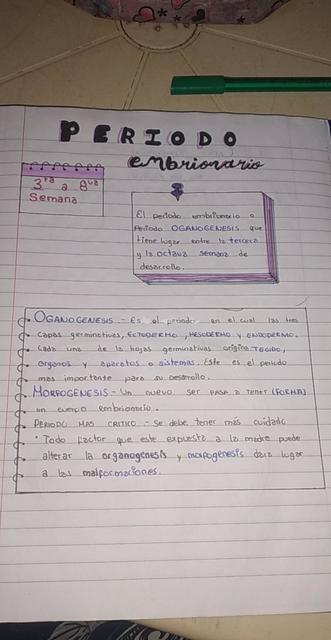 PERIODO
embrionario
3ra a 8va
Semana
El periodo embrionario o
Periodo OGANOGENESIS que
tiene lugar entre la tercera
y la octava semana de
desarrollo.
OGANOGENESIS.- Es el periodo en el cual las tres
capas germinativas, ECTODERMO, MESODERMO y ENDODERMO.
Cada una de la hojas germinativas origina TEJIDO,
organos y aparatos o sistemas. Este es el periodo
mas importante para su desarrollo.
MORFOGENESIS - Un nuevo ser PASA a TENER (FORMA)
un cuerpo embrionario.
PERIODO MAS CRITICO - Se debe tener más cuidado
• Todo factor que este expuesto a la madre puede
alterar la organogenesis y morfogenesis dara lugar
a las malformaciones.